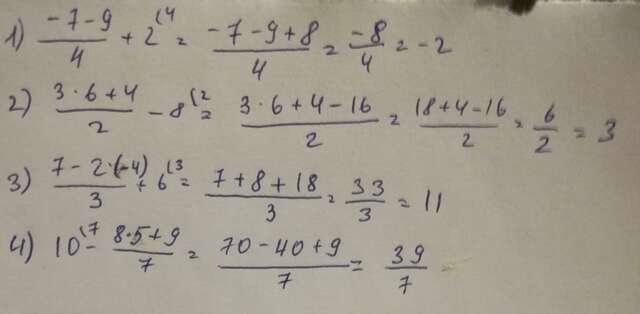 1) \frac{-7-9}{4} + 2^{(4} = \frac{-7-9+8}{4} = \frac{-8}{4} = -2
2) \frac{3·6+4}{2} - 8^{(2} = \frac{3·6+4-16}{2} = \frac{18+4-16}{2} = \frac{6}{2} = 3
3) \frac{7-2·(-4)}{3} + 6^{(3} = \frac{7+8+18}{3} = \frac{33}{3} = 11
4) 10^{(7} - \frac{8·5+9}{7} = \frac{70-40+9}{7} = \frac{39}{7}